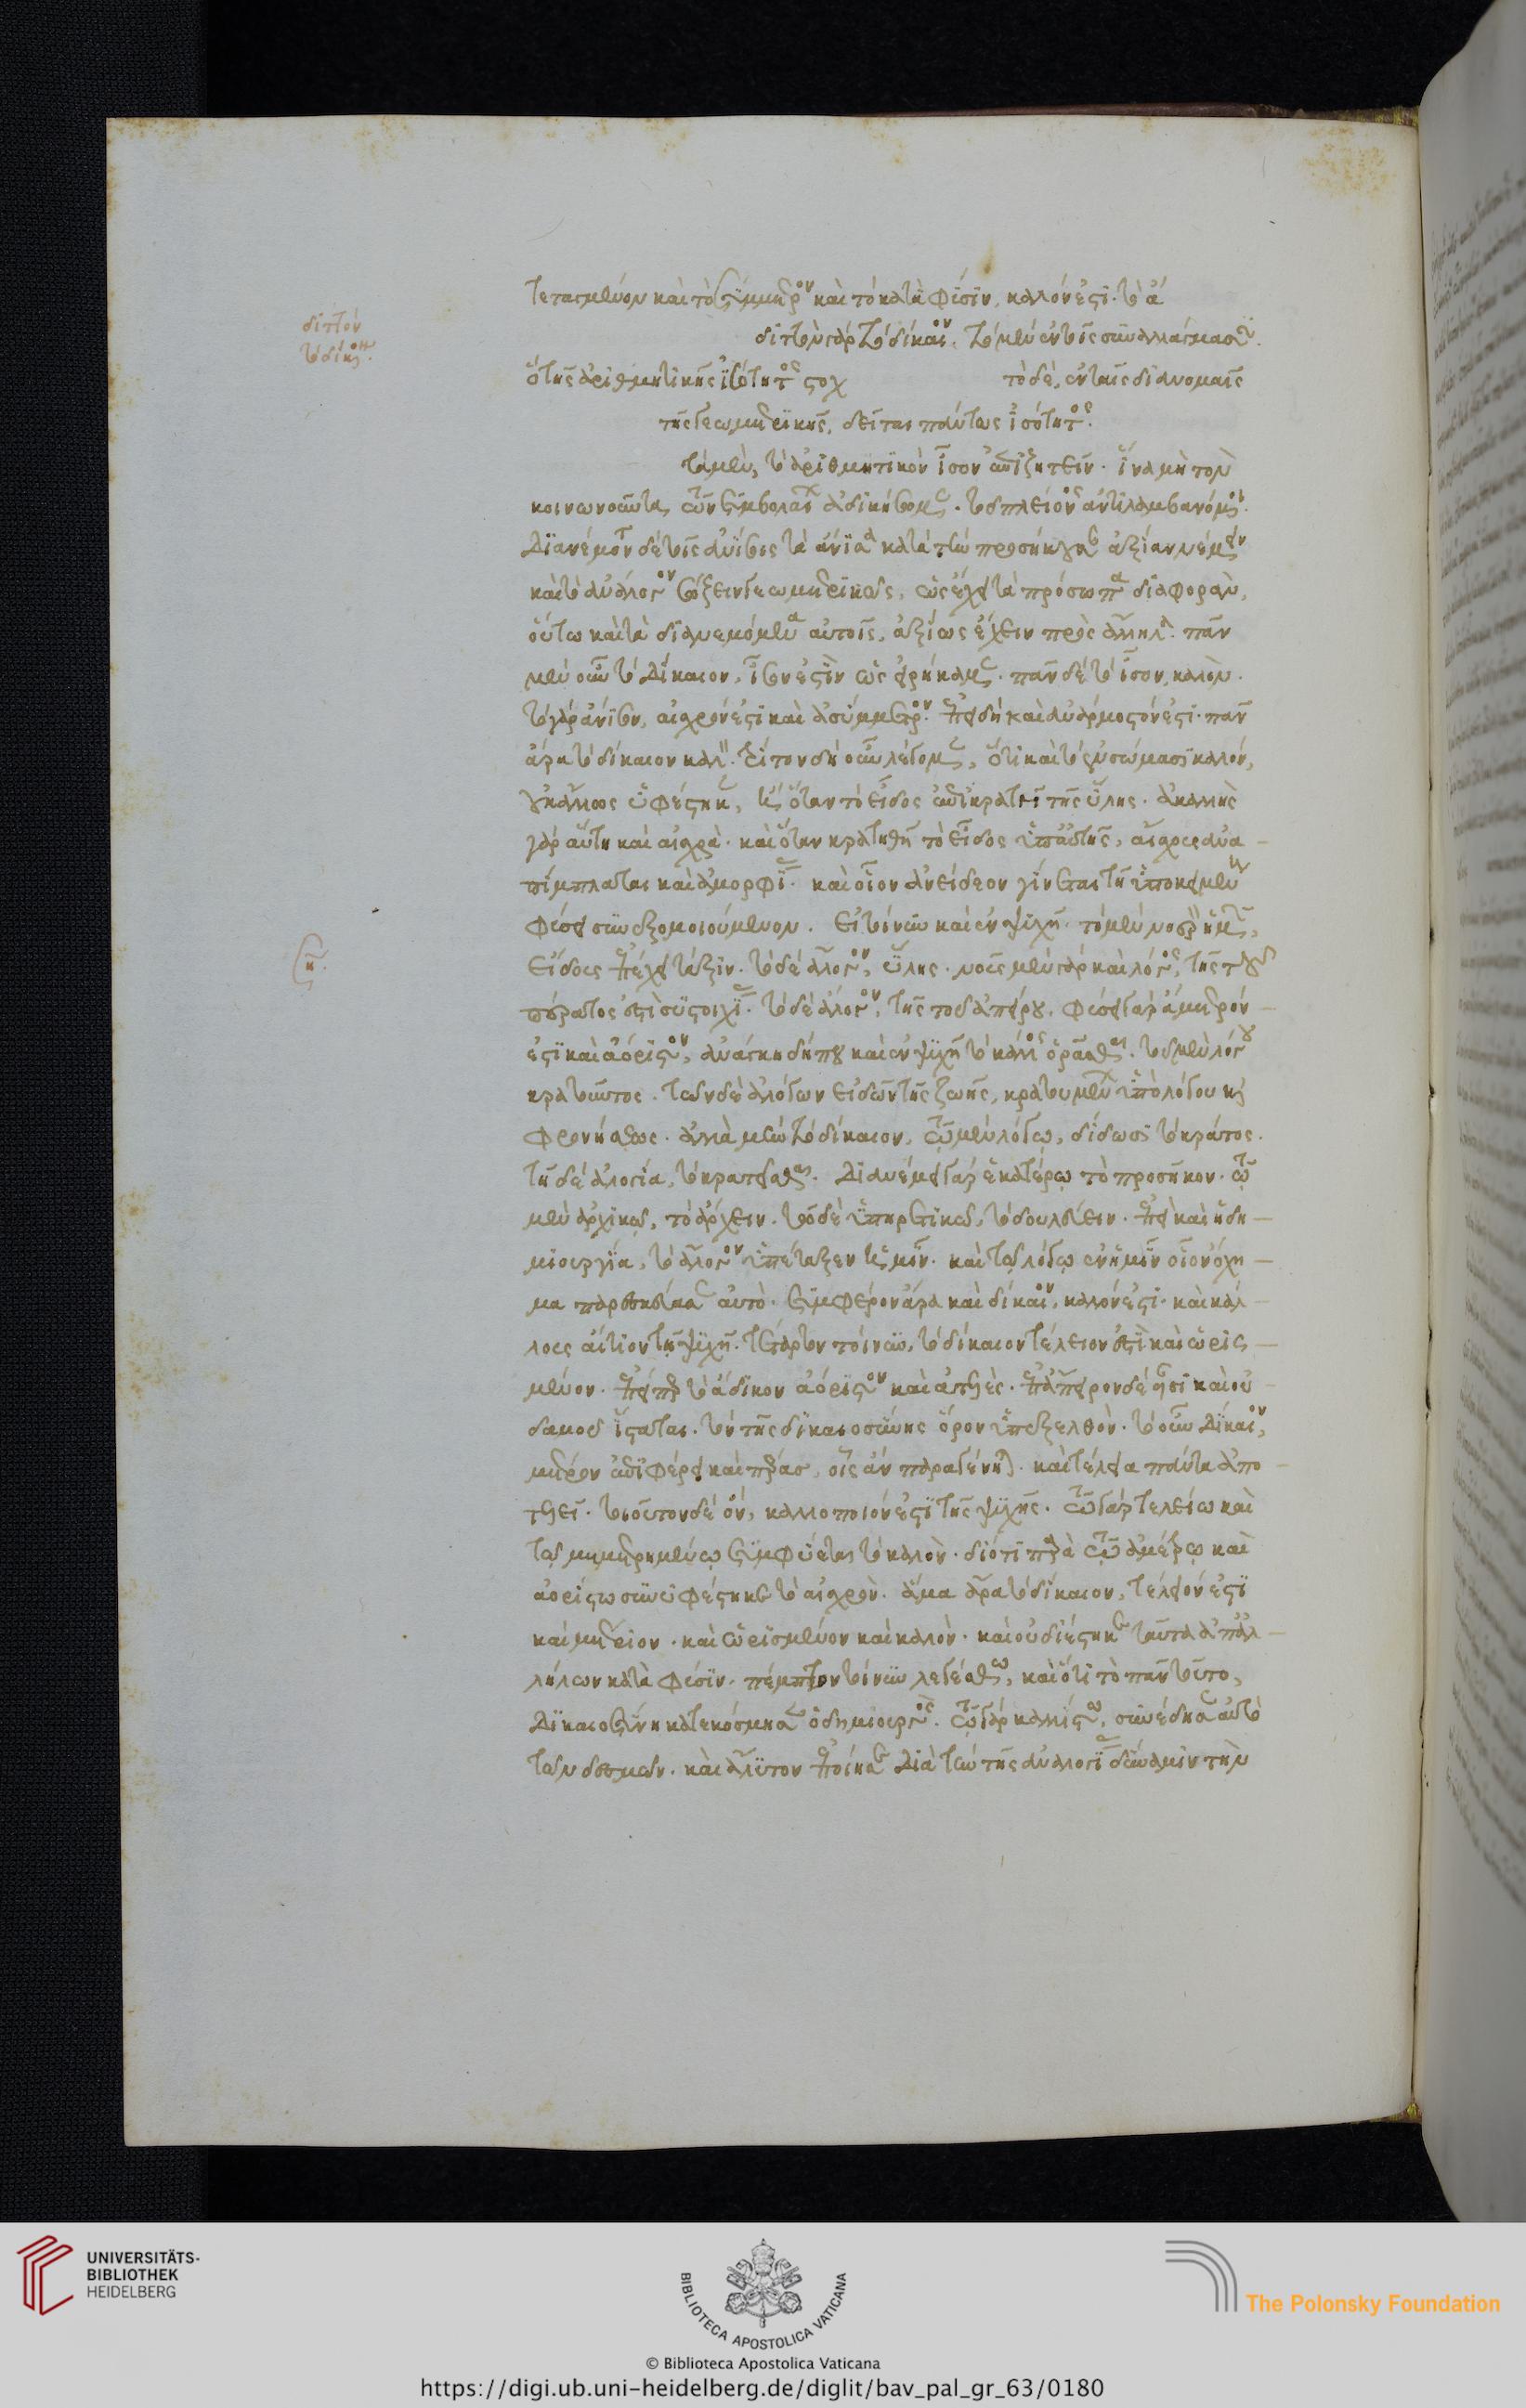 διττὸν
τὸ δίκαιον
τεταγμένον καὶ τὸ σύμμετρον καὶ τὸ κατὰ φύσιν, καλόν ἐστι. τὸ ἄ
διττὸν γὰρ τὸ δίκαιον, τὸ μὲν ἐν τοῖς συναλλάγμασιν.
ὃ τῆς ἀριθμητικῆς ἰσότητος στοχ τὸ δὲ, ἐν ταῖς διανομαῖς
τῆς γεωμετρικῆς, δεῖται πάντως ἰσότητος.
τὸ μὲν, τὸ ἀριθμητικὸν ἴσον ἐπιζητεῖν. ἵνα μὴ τὸν
κοινωνοῦντα τῶν συμβολαίων ἀδικήσωμεν. τοῦ πλείονος ἀντιλαμβανόμενοι.
Διανέμοντα δὲ τοῖς ἀνίσοις τὰ ἄνισα κατὰ τὴν προσήκουσαν ἀξίαν νέμειν
καὶ τὸ ἀνάλογον σώζειν γεωμετρικῶς, ὡς ἔχει τὰ πρόσωπα διαφορὰν,
οὕτω καὶ τὰ διανεμόμενα αὐτοῖς, ἀξίως ἔχειν πρὸς ἄλληλα. πᾶν
μὲν οὖν τὸ Δίκαιον, ἴσον ἐστὶν ὡς εἰρήκαμεν. πᾶν δὲ τὸ ἴσον, καλόν.
τὸ γὰρ ἄνισον, αἰσχρόν ἐστι καὶ ἀσύμμετρον. ἐπειδὴ καὶ ἀνάρμοστόν ἐστι. πᾶν
ἄρα τὸ δίκαιον καλόν. τρίτον δὴ οὖν λέγομεν, ὅτι καὶ τὸ ἐν σώμασι καλόν,
οὐκ ἄλλως ὑφέστηκεν, ἢ ὅταν τὸ εἶδος ἐπικρατεῖ τῆς ὕλης. ἀκαλλὴς
γὰρ αὕτη καὶ αἰσχρά. καὶ ὅταν κρατηθῇ τὸ εἶδος ὑπ' αὐτῆς, αἴσχους ἀνα
πίμπλαται καὶ ἀμορφίας. καὶ οἷον ἀνείδεον γίνεται τῇ ὑποκειμένῃ
φύσει συνεξομοιούμενον. Εἰ τοίνυν καὶ ἐν ψυχῇ. τὸ μὲν νοερὸν ἡμῶν,
εἴδους ἐπέχει τάξιν. τὸ δὲ ἄλογον, ὕλης. νοῦς μὲν γὰρ καὶ λόγος, τῆς τοῦ
πέρατος ἐστὶ συστοιχίας. τὸ δὲ ἄλογον, τῆς τοῦ ἀπείρου. φύσει γὰρ ἄμετρόν
ἐστι καὶ ἀόριστον, ἀνάγκη δήπου καὶ ἐν ψυχῇ τὸ κάλλος ὁρᾶσθαι. τοῦ μὲν λόγου
κρατοῦντος. τῶν δὲ ἀλόγων εἰδῶν τῆς ζωῆς, κρατουμένων ὑπὸ λόγου καὶ
φρονήσεως. ἀλλὰ μὴν τὸ δίκαιον, τῷ μὲν λόγῳ, δίδωσι τὸ κράτος.
τῇ δὲ ἀλογίᾳ, τὸ κρατεῖσθαι. Διανέμει γὰρ ἑκατέρῳ τὸ προσῆκον. τῷ
μὲν ἀρχικῷ, τὸ ἄρχειν. τῷ δὲ ὑπηρετικῷ, τὸ δουλεύειν. ἐπεὶ καὶ ἡ δη
μιουργία, τὸ ἄλογον ὑπέταξεν ἡμῖν. καὶ τῷ λόγῳ ἐν ἡμῖν οἷον ὄχη
μα παρεσκεύασεν αὐτό. συμφέρον ἄρα καὶ δίκαιον, καλόν ἐστι. καὶ κάλ
λους αἴτιον τῇ ψυχῇ. τέταρτον τοίνυν, τὸ δίκαιον τέλειον ἐστὶ καὶ ὡρισ
μένον. ἐπείπερ τὸ ἄδικον ἀόριστον καὶ ἀτελές. ἐπ' ἄπειρον δὲ πρόεισι καὶ οὐ
δαμοῦ ἵσταται. τὸν τῆς δικαιοσύνης ὅρον ὑπεξελθὸν. τὸ οὖν Δίκαιον,
μέτρον ἐπιφέρει καὶ πέρας, οἷς ἂν παραγένηται. καὶ τέλεια πάντα ἀπο
τελεῖ. τοιοῦτον δὲ ὂν, καλλοποιόν ἐστι τῆς ψυχῆς. τῷ γὰρ τελείῳ καὶ
τῷ μεμετρημένῳ συμφύεται τὸ καλόν. διότι παρὰ τῷ ἀμέτρῳ καὶ
ἀορίστῳ συνυφέστηκε τὸ αἰσχρόν. ἅμα ἄρα τὸ δίκαιον, τέλειόν ἐστι
καὶ μέτριον. καὶ ὡρισμένον καὶ καλόν. καὶ οὐ διέστηκε ταῦτα ἀπ' ἀλ
λήλων κατὰ φύσιν. πέμπτον τοίνυν λεγέσθω, καὶ ὅτι τὸ πᾶν τοῦτο,
Δικαιοσύνη κατεκόσμησεν ὁ δημιουργός. τῷ γὰρ καλλίστῳ, συνέδησεν αὐτὸ
τῶν δεσμῶν. καὶ ἄλυτον ἐποίησε Διὰ τὴν τῆς ἀναλογίας δύναμιν τὴν
UNIVERSITÄTS-
BIBLIOTHEK
HEIDELBERG
BIBLIOTECA APOSTOLICA VATICANA
The Polonsky Foundation
© Biblioteca Apostolica Vaticana
https://digi.ub.uni-heidelberg.de/diglit/bav_pal_gr_63/0180